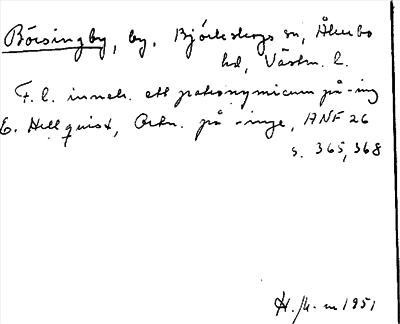 Börsingby, by, Björkskogs sn, Åkerbo
hd, Västm. l.
F. l. inneh. ett patronymicum på -ing
E. Hellquist, Ortn. på -inge, ANF 26
s. 365, 368
H. 1951